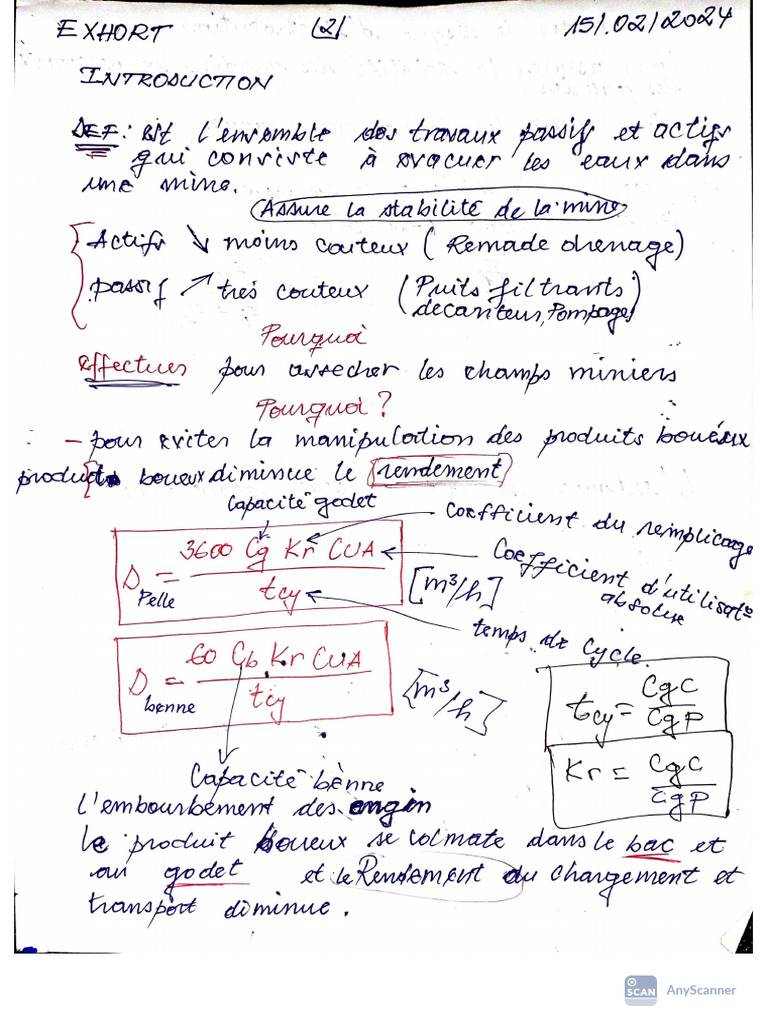 EXHORT (2) 15/.02/2024
INTRODUCTION
DEF: Est l'ensemble des travaux passif et actifs
qui consiste à evacuer les eaux dans
une mine.
Assure la stabilité de la mine
Actifs ↘ moins couteux (Remade drenage)
passif ↗ très couteux (Puits filtrants
decanteur, Pompage)
Pourquoi
Effectues pour assecher les champs miniers
Pourquoi?
- pour eviter la manipulation des produits bouéux
produits boueux diminue le rendement
Capacité godet
coefficient du remplicage
D Pelle = 3600 Cg Kr CUA / tcy [m³/h]
Coefficient d'utilisat°
absolue
temps de cycle.
D benne = 60 Cb Kr CUA / tcy [m³/h]
tcy = CgC / CgP
Kr = CgC / CgP
Capacité bènne
l'embourbement des engin
le produit boueux se colmate dans le bac et
au godet et le Rendement du chargement et
transport diminue.
SCAN AnyScanner